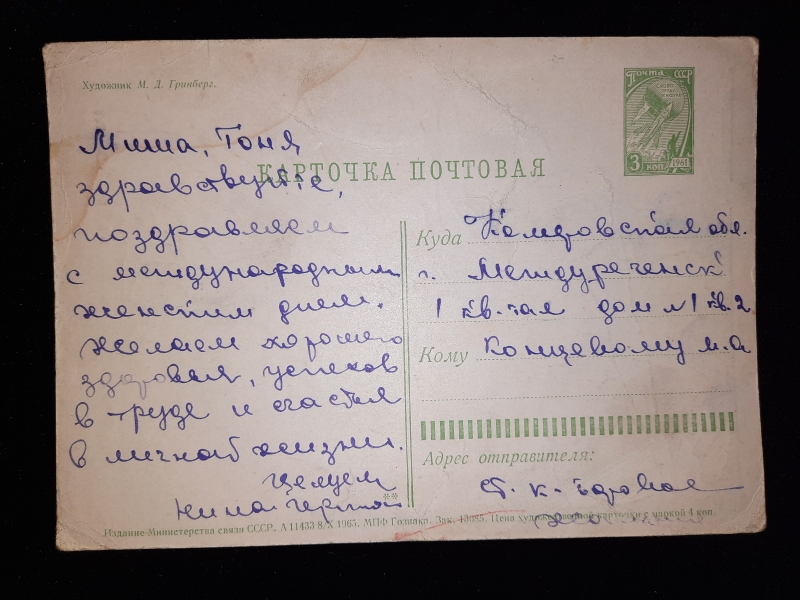 Художник М. Д. Гринберг.
Почта СССР
3 коп
1961
КАРТОЧКА ПОЧТОВАЯ
Миша, Тоня
здравствуйте,
поздравляем
с международным
женским днем.
желаем хорошего
здоровья, успехов
в труде и счастья
в личной жизни.
Целуем
Нина
Куда Кемеровская обл.
г. Междуреченск
1 кв-тал дом №1 кв. 2
Кому Концевому М.А
Адрес отправителя:
Издание Министерства связи СССР. А 11433 8/X 1965. МПФ Гознака. Зак. 43085. Цена художественной карточки с маркой 4 коп.